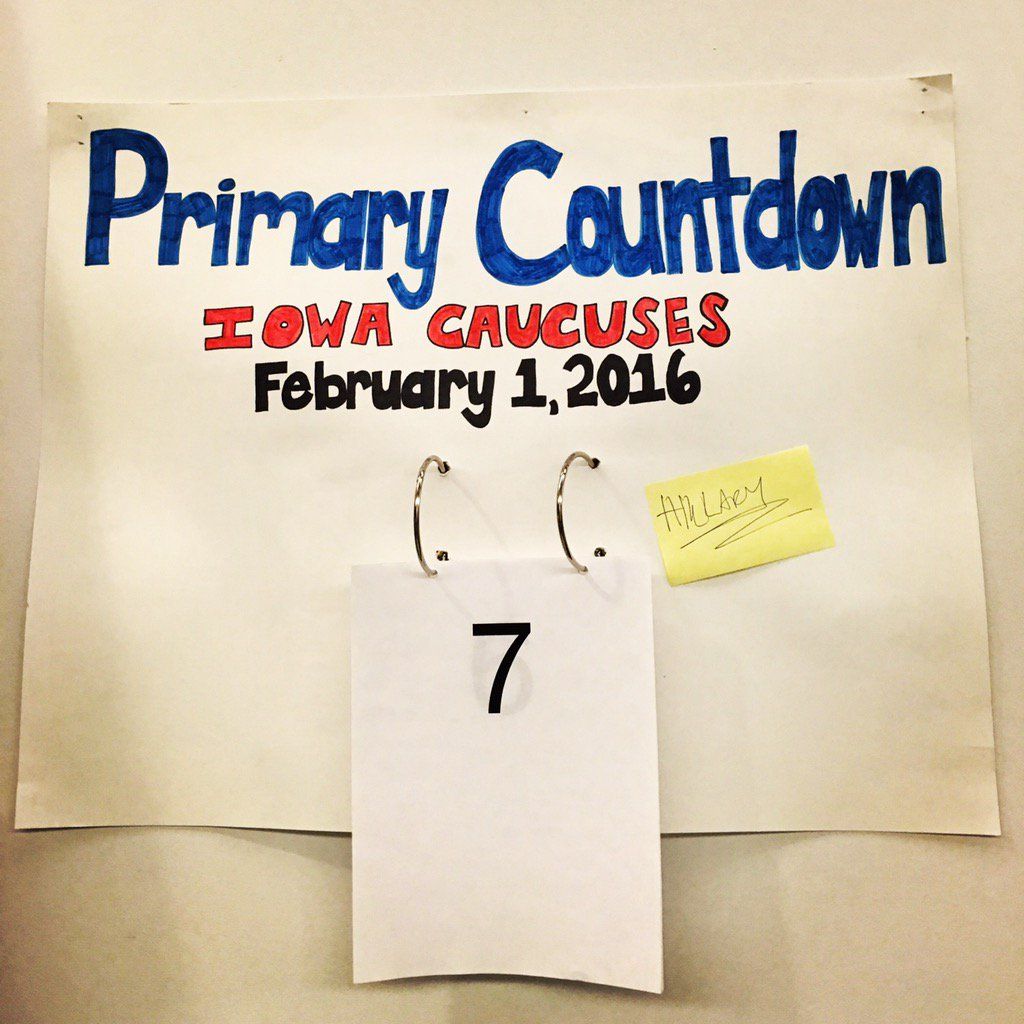 Primary Countdown
IOWA CAUCUSES
February 1, 2016
HILLARY
7